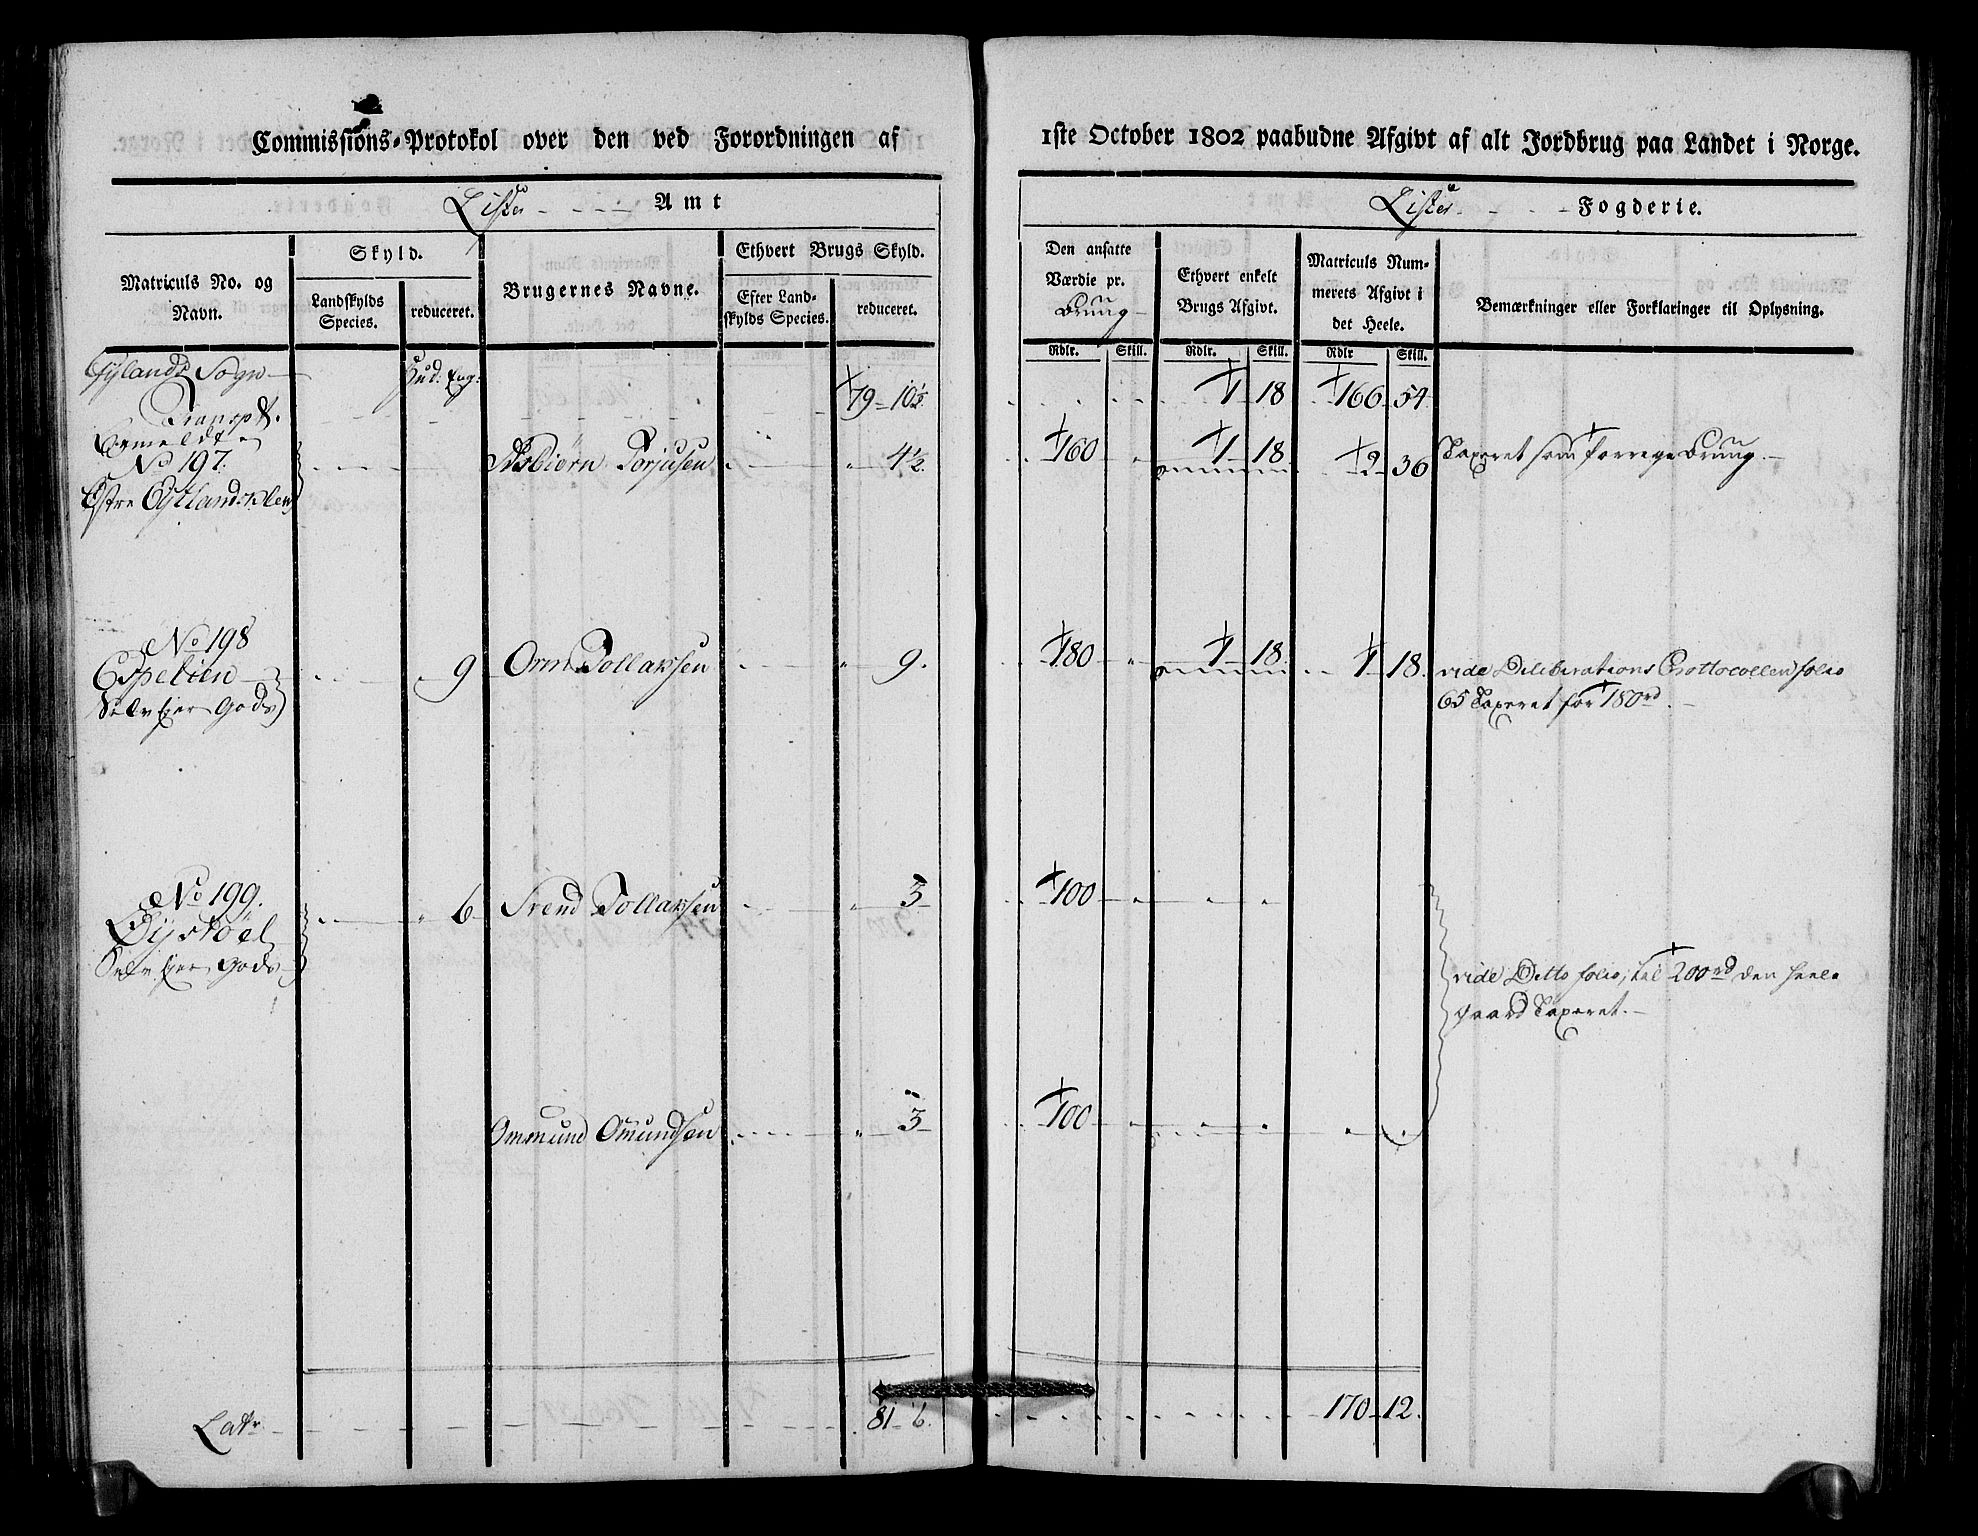 Commissions-Protokol over den ved Forordningen af
Lister Amt
Matriculs No. og Navn.
Skyld.
Landskylds Species.
reduceret.
Brugernes Navne.
Ethvert Brugs Skyld.
Efter Landskylds Species.
reduceret.
Gylands Sogn
Hud. Eng.
Transpt. 79 10½
Anmeldte
No 197. Asbiörn Torjusen 4½
Østre Gyland
No 198
Espetien 9 Orm Tollaksen 9.
Selv Ejer Gods
No 199. 6 Svend Tollaksen 3
Øÿstöel
Selv Ejer Gods
Ommund Omundsen 3
Latr 81 6.
1ste October 1802 paabudne Afgivt af alt Jordbrug paa Landet i Norge.
Lister Fogderie.
Den ansatte Værdie pr. Brug
Ethvert enkelt Brugs Afgivt.
Matriculs Nummerets Afgivt i det Heele.
Bemærkninger eller Forklaringer til Oplysning.
Rdlr. Skill. Rdlr. Skill. Rdlr Skill.
1 18 166 54
160 1 18 2 36 Taxeret som forrige Brug.
180 1 18 1 18. vide Deliberations Prottocollen folio
65 Taxeret for 180rd.
100
vide Ditto folio, tal 200rd den heele
gaard Taxeret.
100
170 12.